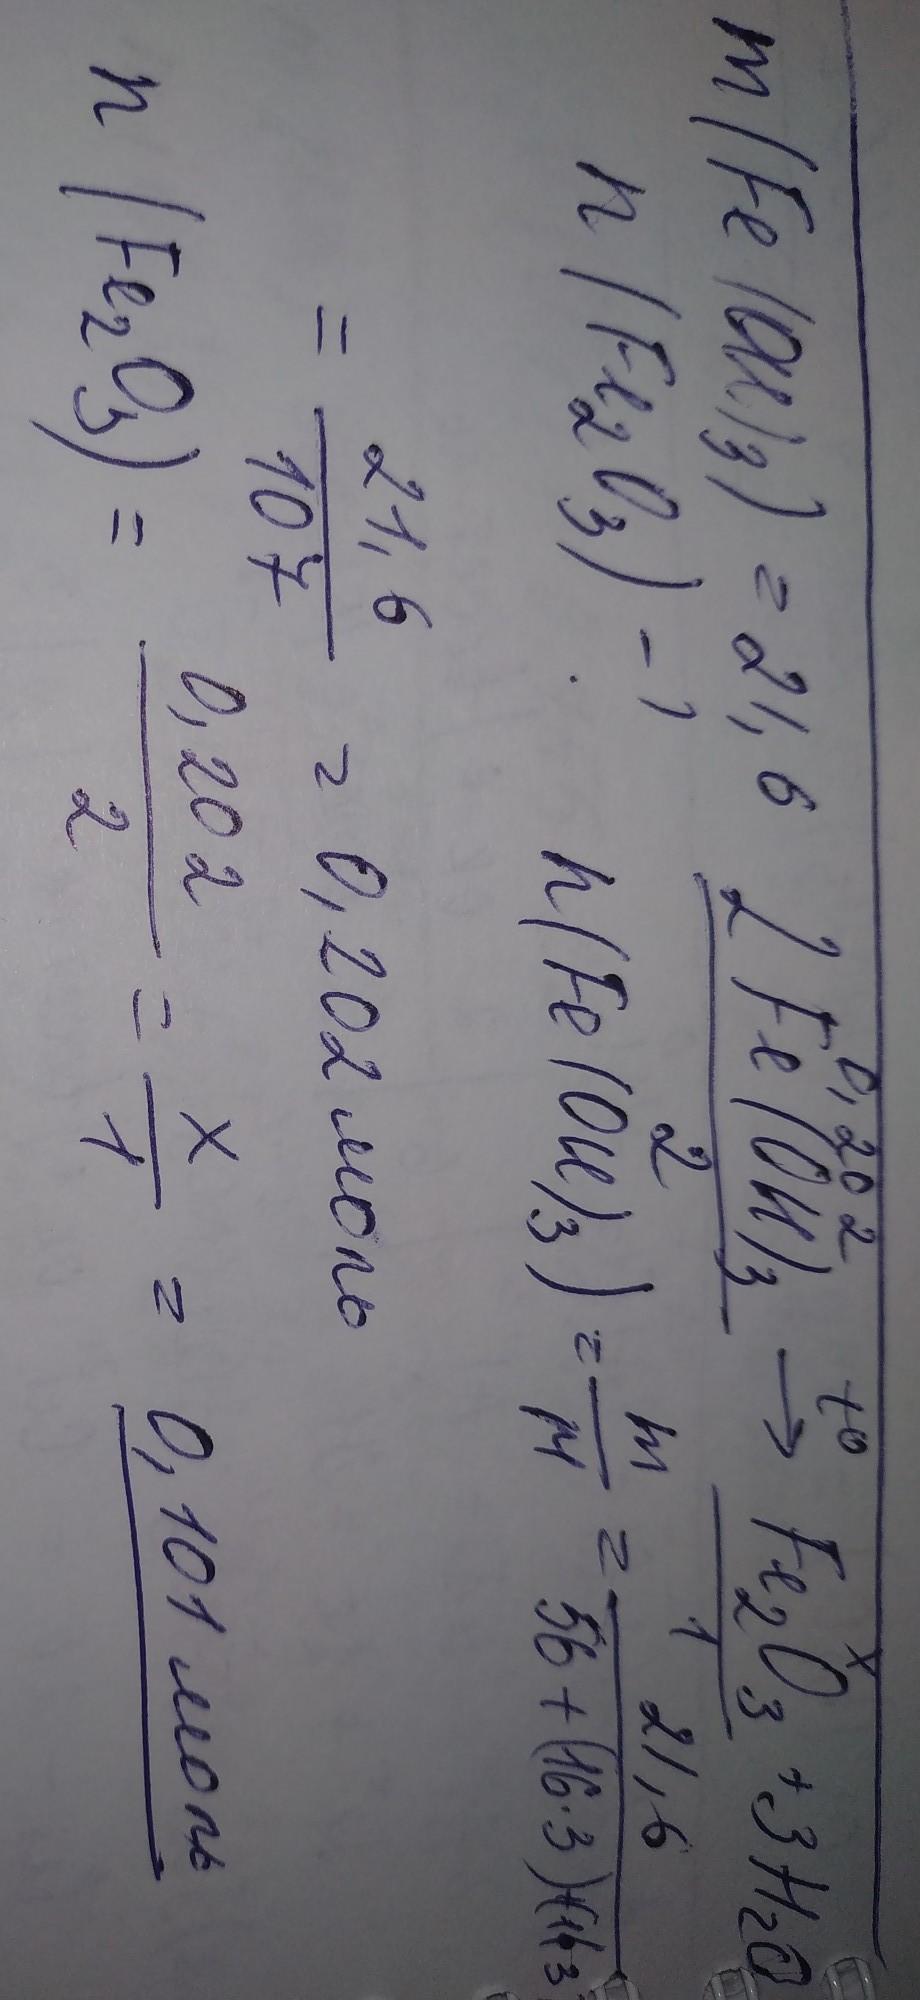 m(Fe(OH)3) = 21,6
0,202 t° x
2Fe(OH)3 → Fe2O3 + 3H2O
2 1
n(Fe2O3) - ?
n(Fe(OH)3) = m/M = 21,6/56+(16·3)+(1·3
= 21,6/107 = 0,202 моль
n(Fe2O3) = 0,202/2 = x/1 = 0,101 моль